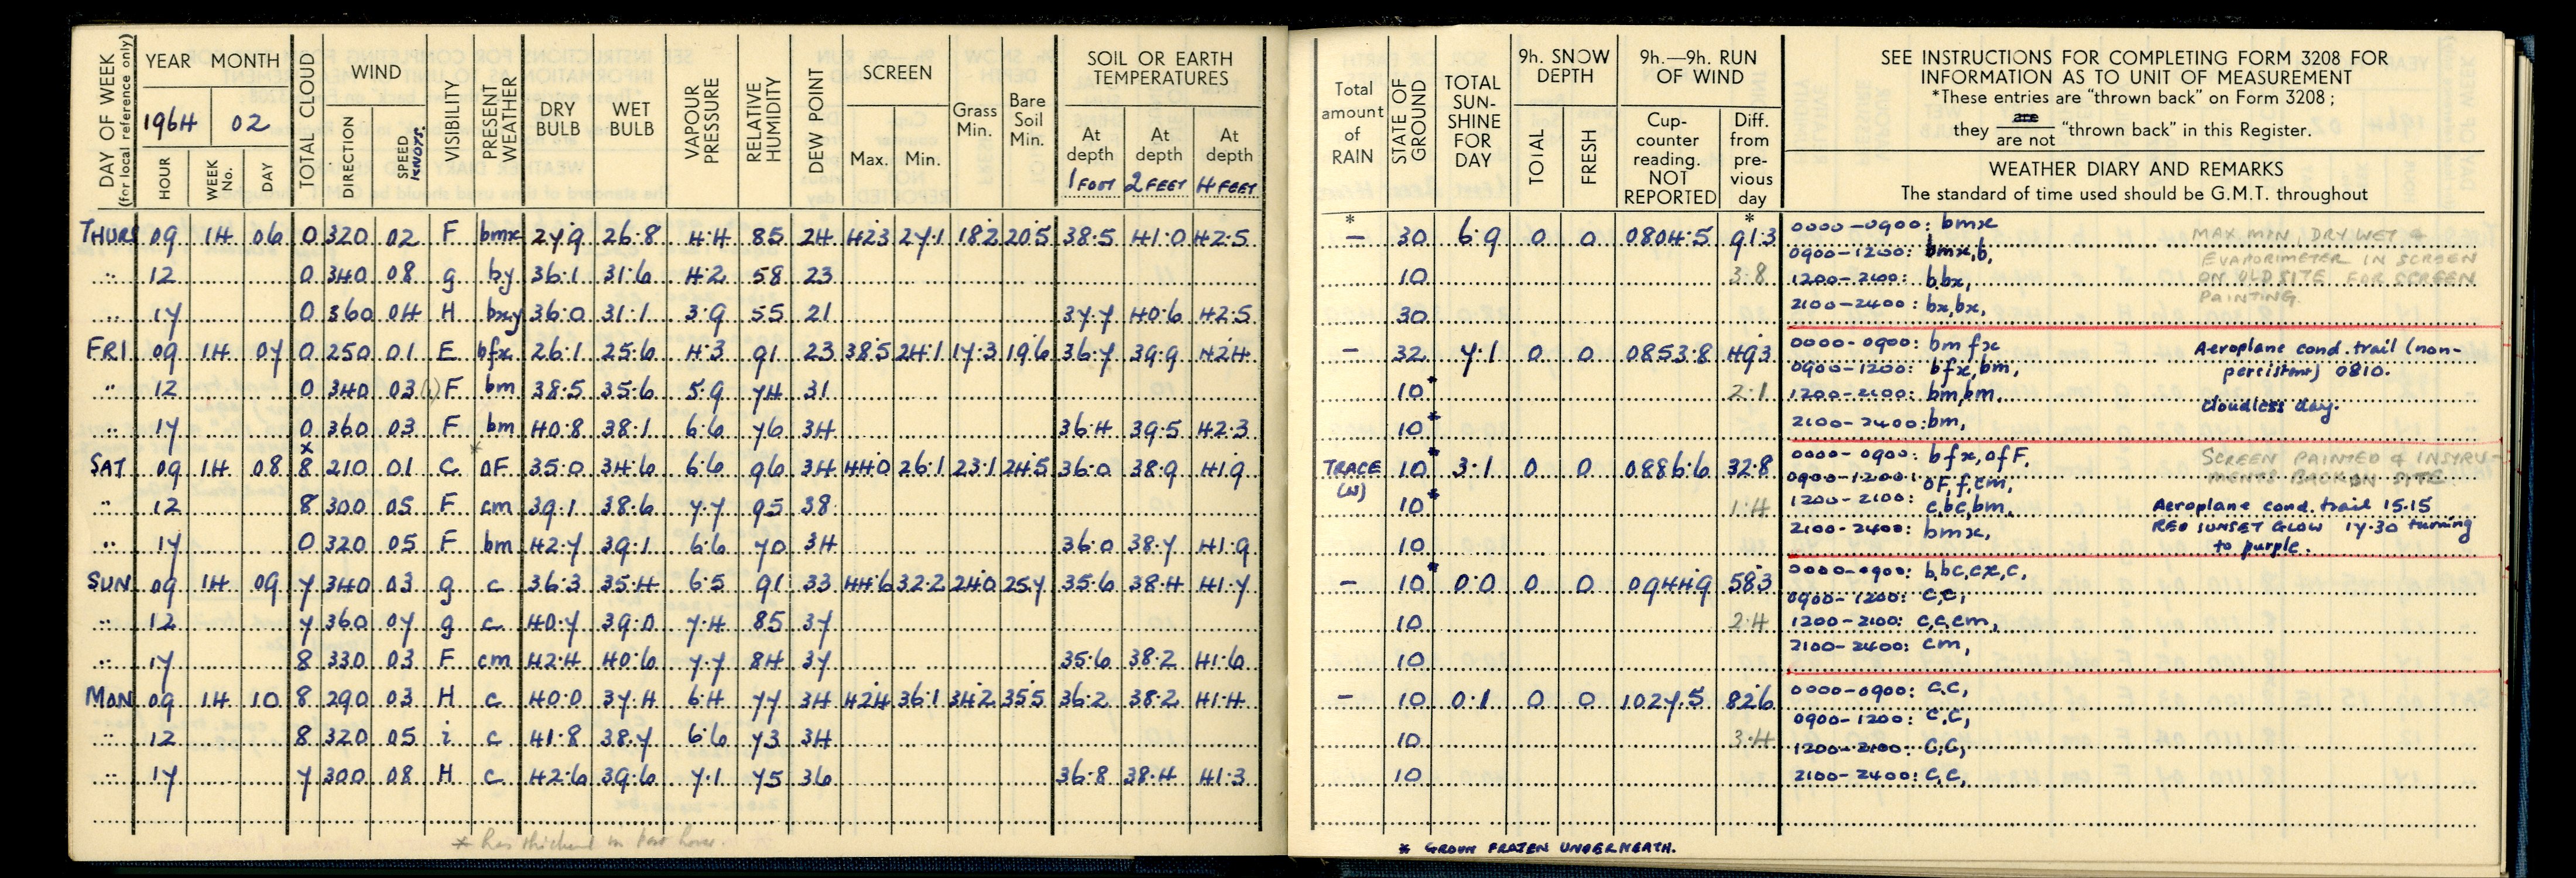 DAY OF WEEK (for local reference only)
YEAR MONTH
1964 02
HOUR WEEK No. DAY
TOTAL CLOUD
WIND
DIRECTION SPEED KNOTS.
VISIBILITY
PRESENT WEATHER
DRY BULB
WET BULB
VAPOUR PRESSURE
RELATIVE HUMIDITY
DEW POINT
SCREEN
Max. Min.
Grass Min.
Bare Soil Min.
SOIL OR EARTH TEMPERATURES
At depth 1 FOOT
At depth 2 FEET
At depth 4 FEET
THURS 09 14 06 0 320 02 F bmx 27.9 26.8 4.4 85 24 42.3 27.1 18.2 20.5 38.5 41.0 42.5
" 12 0 340 08 g by 36.1 31.6 4.2 58 23
" 17 0 360 04 H bxy 36.0 31.1 3.9 55 21 37.7 40.6 42.5
FRI 09 14 07 0 250 01 E bfx 26.1 25.6 4.3 91 23 38.5 24.1 17.3 19.6 36.7 39.9 42.4
" 12 0 340 03 F bm 38.5 35.6 5.9 74 31
" 17 0 360 03 F bm 40.8 38.1 6.6 76 34 36.4 39.5 42.3
SAT 09 14 08 8 210 01 C OF 35.0 34.6 6.6 96 34 44.0 26.1 23.1 24.5 36.0 38.9 41.9
" 12 8 300 05 F cm 39.1 38.6 7.7 95 38
" 17 0 320 05 F bm 42.7 39.1 6.6 70 34 36.0 38.7 41.9
SUN 09 14 09 7 340 03 g c 36.3 35.4 6.5 91 33 44.6 32.2 24.0 25.7 35.6 38.4 41.7
" 12 7 360 07 g c 40.7 39.0 7.4 85 37
" 17 8 330 03 F cm 42.4 40.6 7.7 84 37 35.6 38.2 41.6
MON 09 14 10 8 290 03 H c 40.0 37.4 6.4 77 34 42.4 36.1 34.2 35.5 36.2 38.2 41.4
" 12 8 320 05 i c 41.8 38.7 6.6 73 34
" 17 7 300 08 H c 42.6 39.6 7.1 75 36 36.8 38.4 41.3
* has thickened in
Total amount of RAIN
STATE OF GROUND
TOTAL SUN-SHINE FOR DAY
9h. SNOW DEPTH
TOTAL FRESH
9h.—9h. RUN OF WIND
Cup-counter reading. NOT REPORTED
Diff. from pre-vious day
SEE INSTRUCTIONS FOR COMPLETING FORM 3208 FOR
INFORMATION AS TO UNIT OF MEASUREMENT
*These entries are "thrown back" on Form 3208;
they are / are not "thrown back" in this Register.
WEATHER DIARY AND REMARKS
The standard of time used should be G.M.T. throughout
* *
– 30 6.9 0 0 0804.5 91.3 0000-0900: bmx
0900-1200: bmx,b,
10 3.8 1200-2100: b,bx,
30 2100-2400: bx,bx,
MAX. MIN, DRY WET &
EVAPORIMETER IN SCREEN
ON OLD SITE FOR SCREEN
PAINTING.
– 32 7.1 0 0 0853.8 49.3 0000-0900: bmfx
0900-1200: bfx,bm,
10* 2.1 1200-2100: bm,bm,
10* 2100-2400: bm,
Aeroplane cond. trail (non-
persistent) 0810.
Cloudless day.
TRACE (W) 10* 3.1 0 0 0886.6 32.8 0000-0900: bfx,ofF,
0900-1200: OF,f,cm,
10* 1.4 1200-2100: c,bc,bm,
10 2100-2400: bmx,
SCREEN PAINTED & INSTRU-
MENTS BACK ON SITE.
Aeroplane cond. trail 15.15
RED SUNSET GLOW 17.30 turning
to purple.
– 10* 0.0 0 0 0944.9 58.3 0000-0900: b,bc,cx,c,
0900-1200: c,c,
10 2.4 1200-2100: c,c,cm,
10 2100-2400: cm,
– 10 0.1 0 0 1027.5 82.6 0000-0900: c,c,
0900-1200: c,c,
10 3.4 1200-2100: c,c,
10 2100-2400: c,c,
* UNDERNEATH.